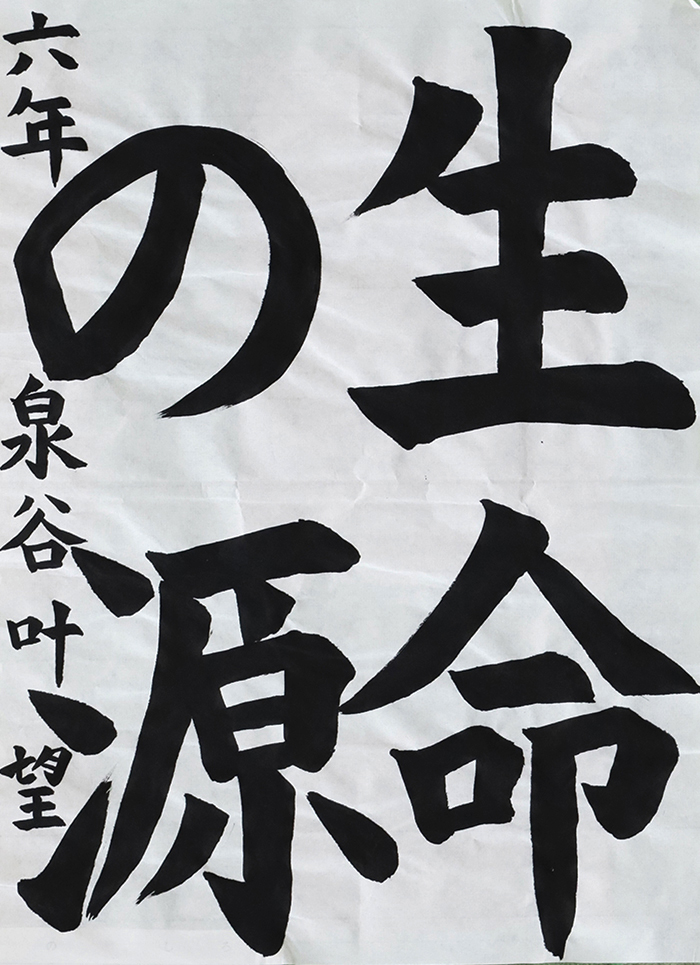 生命
の源
六年 泉谷叶望